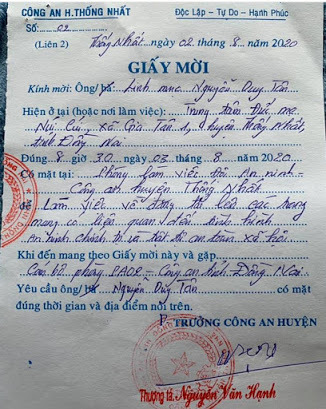 CÔNG AN H.THỐNG NHẤT
Độc Lập - Tự Do - Hạnh Phúc
Số: 02
(Liên 2)
Thống Nhất, ngày 02 tháng 8 năm 2020
GIẤY MỜI
Kính mời: Ông/bà Linh mục Nguyễn Duy Tân
Hiện ở tại (hoặc nơi làm việc): Trung tâm Đức mẹ
Núi Cúi, xã Gia Tân 1, huyện Thống Nhất,
tỉnh Đồng Nai
Đúng 8 giờ 30, ngày 03 tháng 8 năm 2020
Có mặt tại: Phòng làm việc Đội An ninh -
Công an huyện Thống Nhất
để: Làm việc về đăng tải trên các trang
mạng có liên quan đến tình hình
An ninh chính trị và trật tự an toàn xã hội
Khi đến mang theo Giấy mời này và gặp
Cán bộ phòng PA02 - Công an tỉnh Đồng Nai
Yêu cầu ông/bà Nguyễn Duy Tân có mặt
đúng thời gian và địa điểm nói trên.
P. TRƯỞNG CÔNG AN HUYỆN
Thượng tá. Nguyễn Văn Hạnh